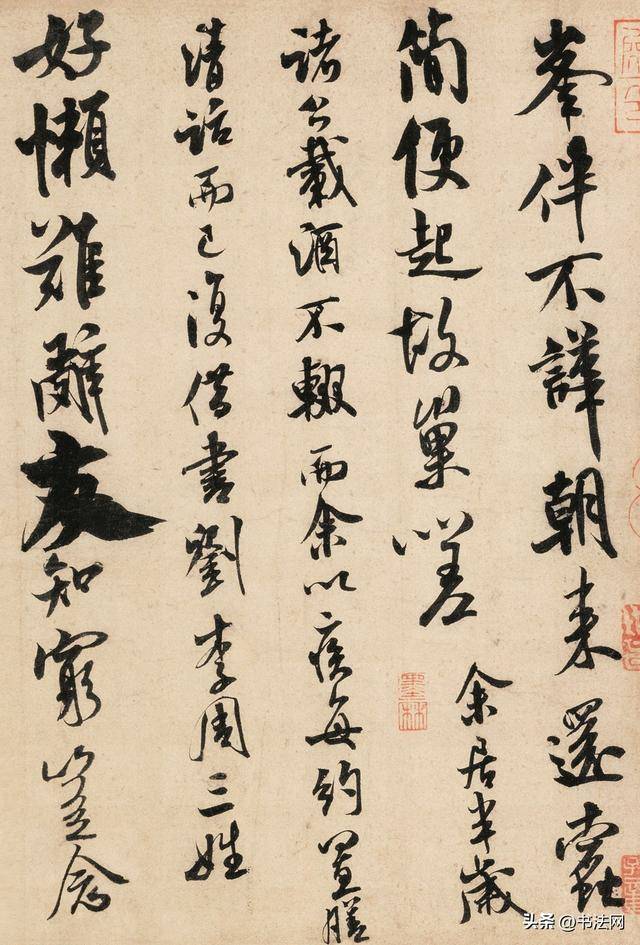 峯伴不譁朝来還蠹
簡便起故巢嗟
余居半歲
諸公載酒不輟而余以疾每約置膳
清話而已復借書劉李周三姓
好懶難辭友知窮豈念
墨林
头条 @书法网